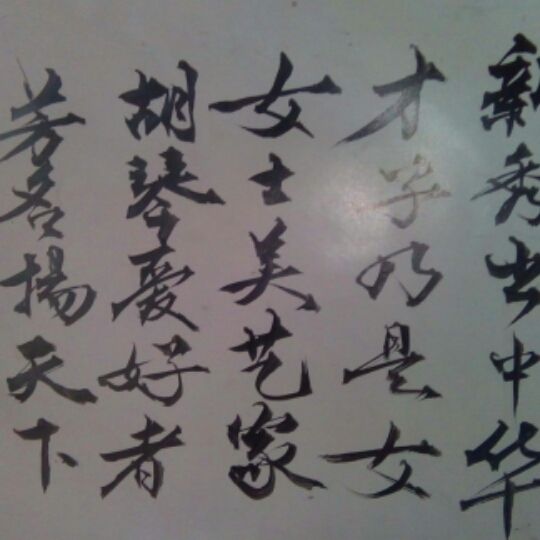 新秀出中华
才学乃是女
女士美艺家
胡琴爱好者
芳名揚天下